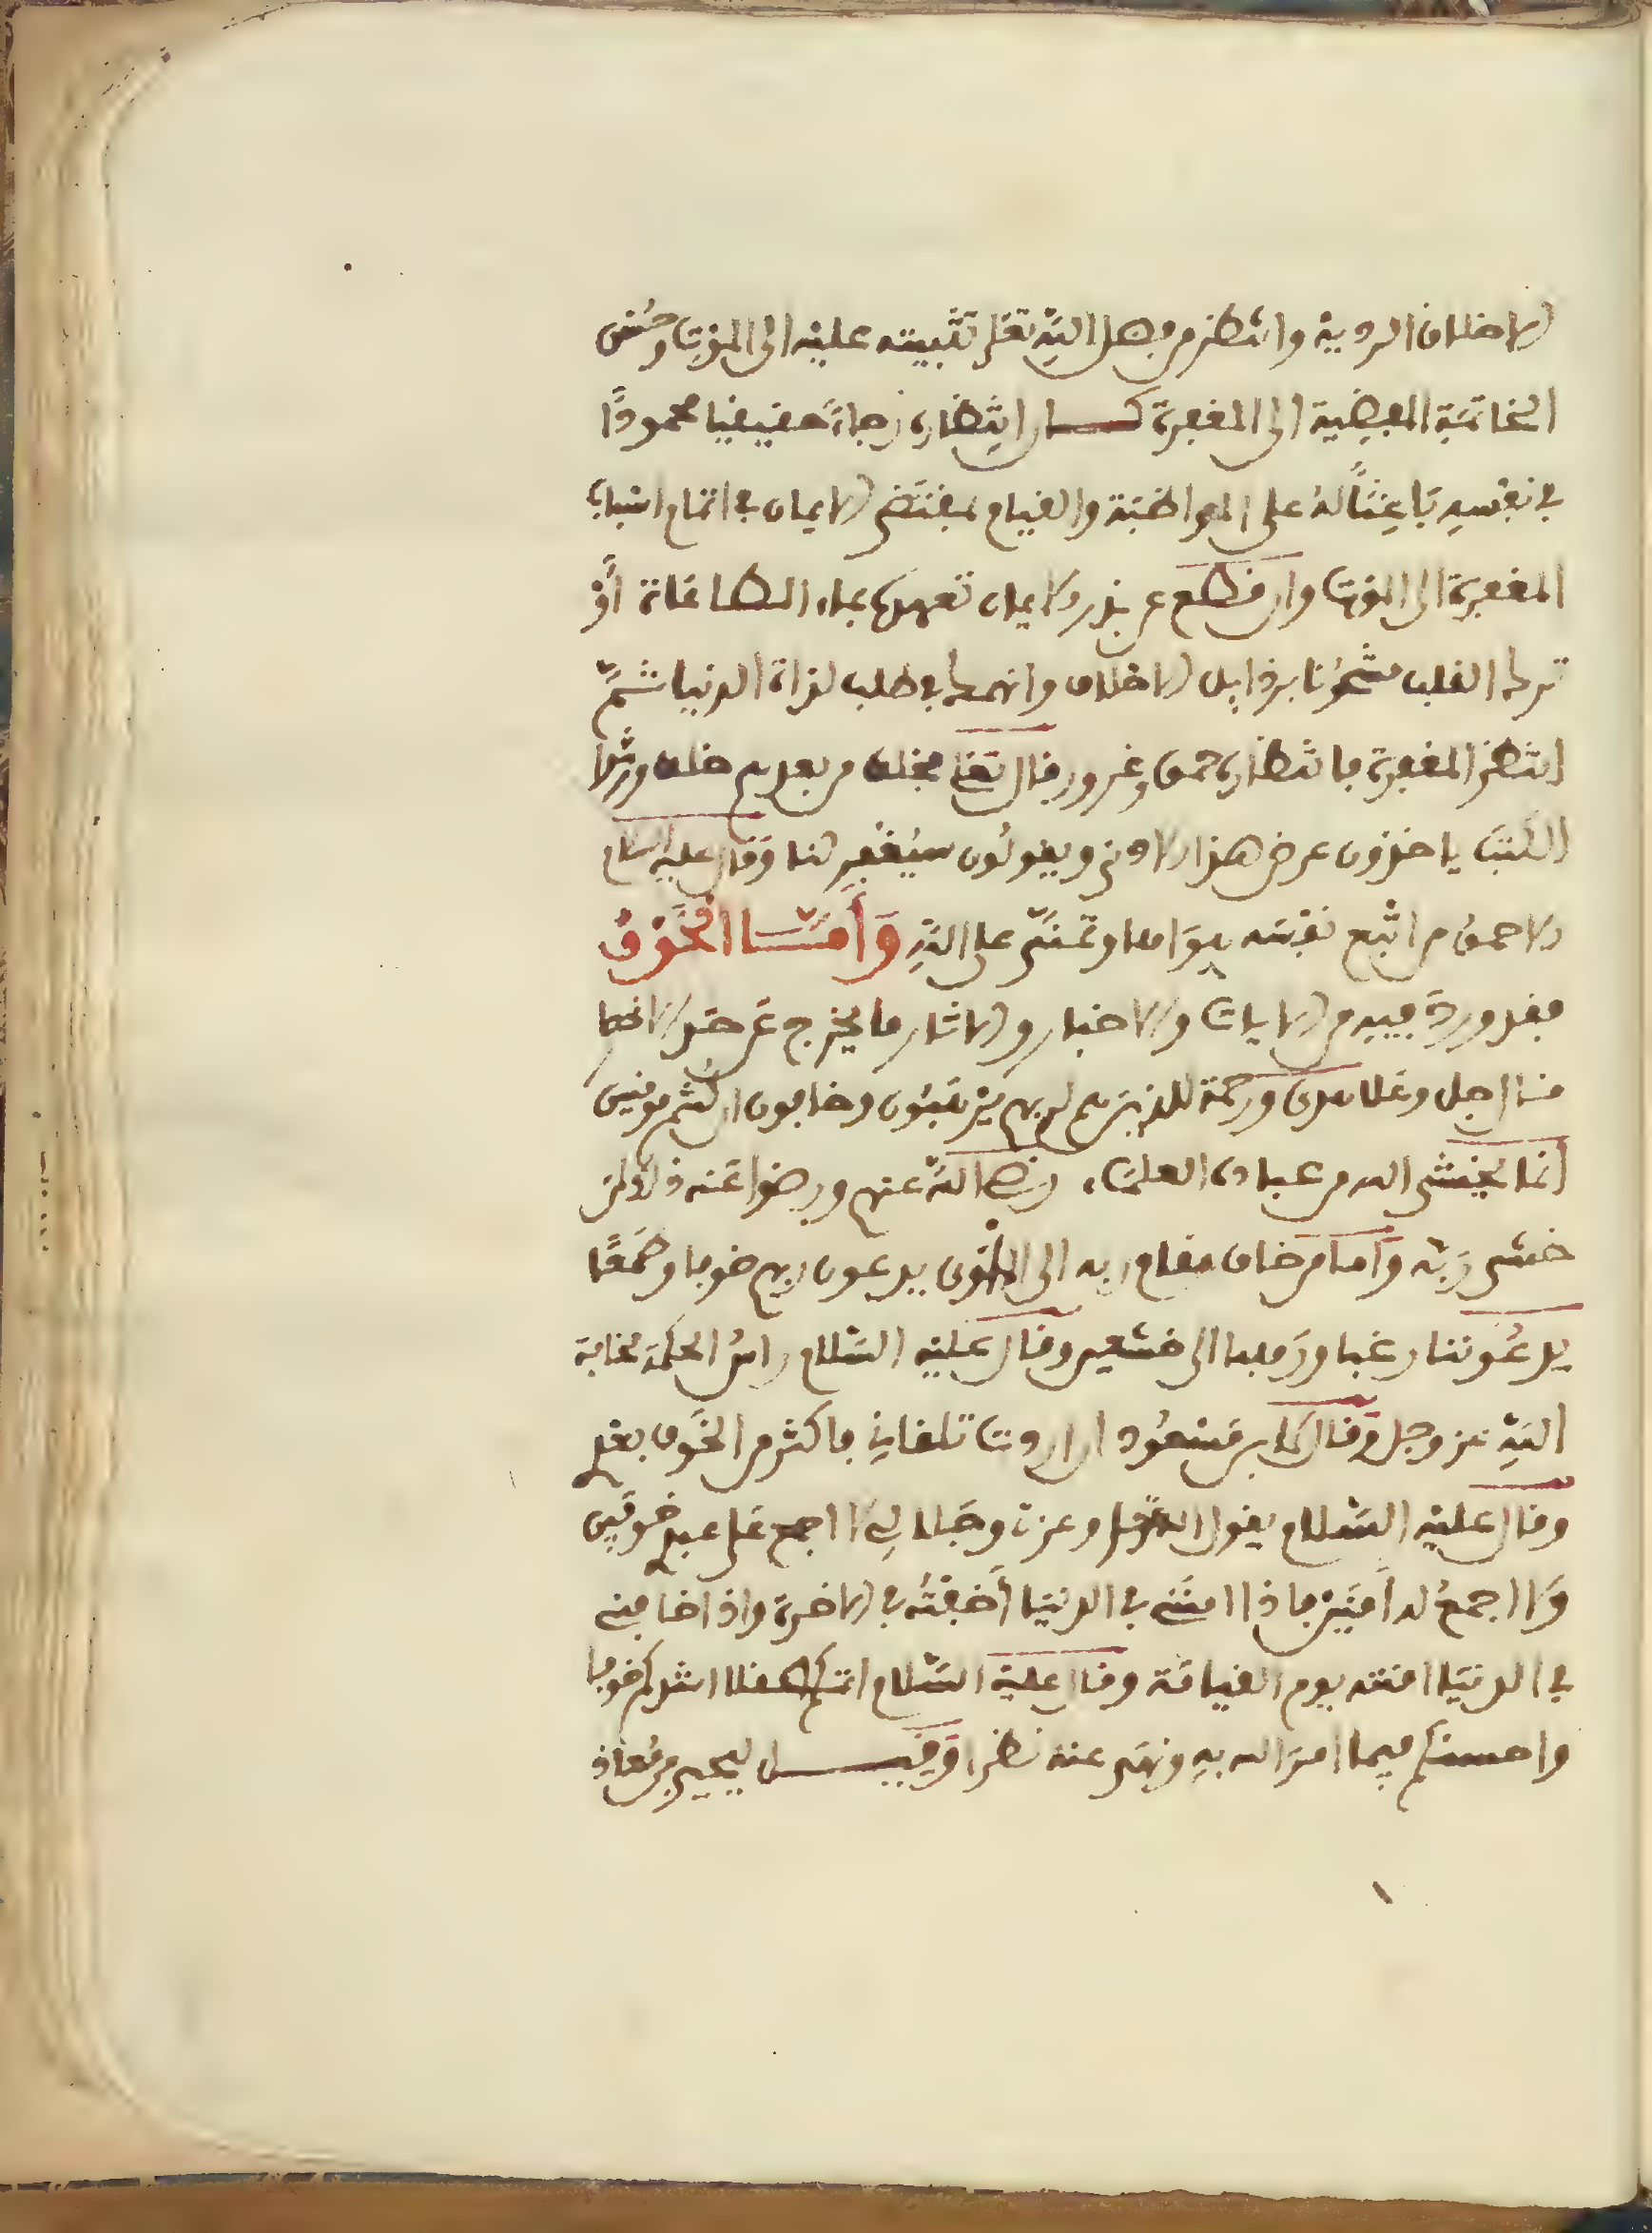 الاخلاق الردية وانتظر من فضل الله تعلى تثبيته عليه الى الموت وحسن
الخاتمة المفضية الى المغفرة كان انتظاره رجاء حقيقيا محمودا
في نفسه باعثا له على المواظبة والقيام بمقتضى الايمان في اتمام اسباب
المغفرة الى الموت وان قطع عن بذر الايمان تعهدها بماء الطاعات أو
ترك القلب مشحونا برذايل الاخلاق وانهمك في طلب لذات الدنيا ثم
انتظر المغفرة فانتظاره حمق وغرور قال تعلى فخلف من بعدهم خلف ورثوا
الكتب ياخذون عرض هذا الادنى ويقولون سيغفر لنا وقال عليه السلام
الاحمق من اتبع نفسه هواها وتمنى على الله وأما الخوف
فقد ورد فيه من الايات والاخبار والاثار ما يخرج عن حد الانحصا
منها جل وعلا هدى ورحمة للذين هم لربهم يرهبون وخافون ان كنتم مومنين
انما يخشى الله من عباده العلماء رضي الله عنهم ورضوا عنه ذلك لمن
خشي ربه وأما من خاف مقام ربه الى الماوى يدعون ربهم خوفا وطمعا
يدعوننا رغبا ورهبا الى خشعين وقال عليه السلام راس الحكمة مخافة
الله عز وجل وقال لابن مسعود ان اردت ان تلقاني فاكثر من الخوف بعدي
وقال عليه السلام يقول الله عز وجل وعزتي وجلالي لا اجمع على عبدي خوفين
ولا اجمع له أمنين فاذا امنني في الدنيا أخفته في الاخرة واذا خافني
في الدنيا امنته يوم القيامة وقال عليه السلام اتمكم عقلا اشدكم خوفا
واحسنكم فيما امر الله به ونهى عنه نظرا وقيل ليحيى بن معاذ